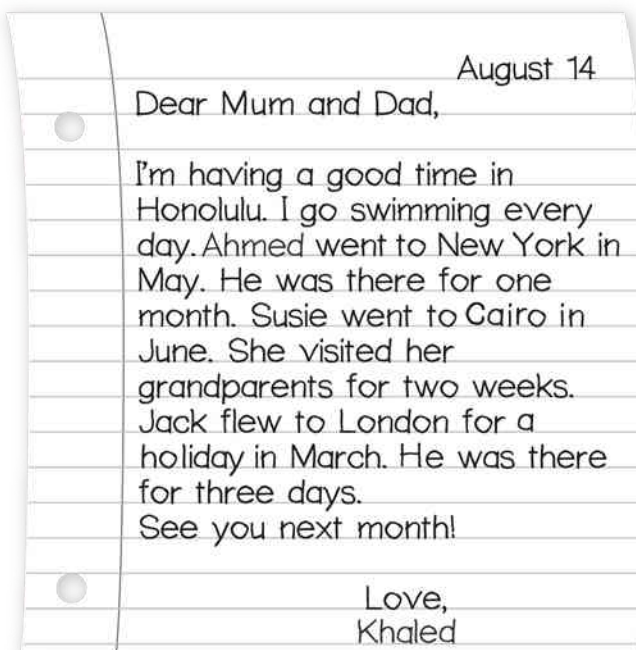 August 14
Dear Mum and Dad,
I'm having a good time in
Honolulu. I go swimming every
day. Ahmed went to New York in
May. He was there for one
month. Susie went to Cairo in
June. She visited her
grandparents for two weeks.
Jack flew to London for a
holiday in March. He was there
for three days.
See you next month!
Love,
Khaled